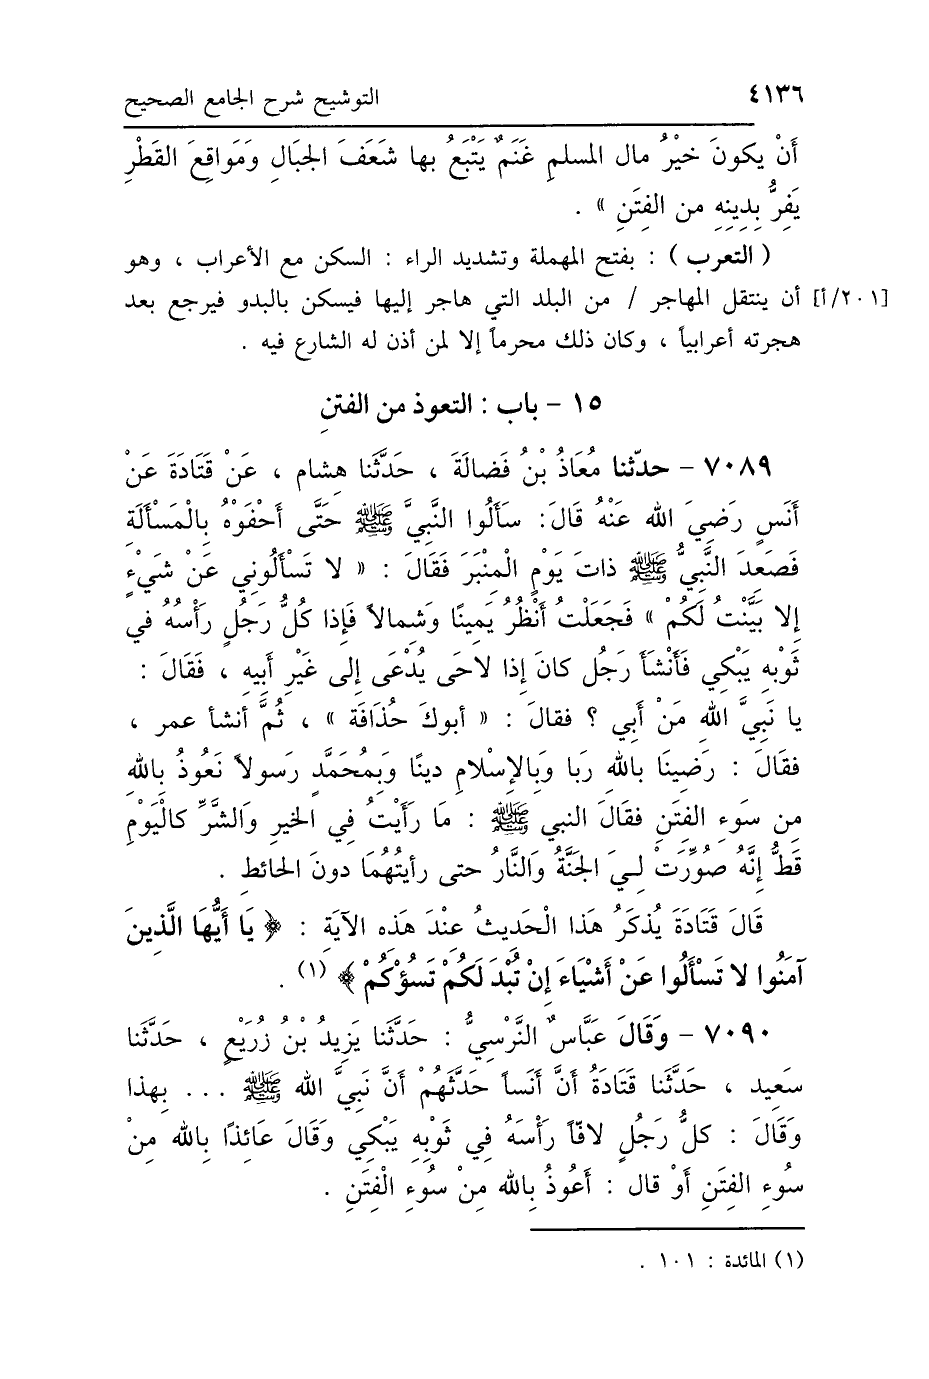 ٤١٣٦ التوشيح شرح الجامع الصحيح
أَنْ يكونَ خيْرُ مال المسلمِ غَنَمٌ يَتْبَعُ بها شَعَفَ الجبَالِ وَمَوَاقِعَ القَطْرِ
يَفِرُّ بِدِينِهِ من الفِتَنِ » .
( التعرب ) : بفتح المهملة وتشديد الراء : السكن مع الأعراب ، وهو
[٢٠١/أ] أن ينتقل المهاجر / من البلد التي هاجر إليها فيسكن بالبدو فيرجع بعد
هجرته أعرابياً ، وكان ذلك محرماً إلا لمن أذن له الشارع فيه .
١٥ – باب : التعوذ من الفتنِ
٧٠٨٩ – حدّثنا مُعَاذُ بْنُ فَضالَةَ ، حَدَّثَنا هِشام ، عَنْ قَتَادَةَ عَنْ
أَنَسٍ رَضِيَ الله عَنْهُ قَالَ: سَأَلُوا النَّبِيَّ ﷺ حَتَّى أَحْفَوْهُ بِالْمَسْأَلَةِ
فَصَعِدَ النَّبِيُّ ﷺ ذاتَ يَوْمٍ الْمِنْبَرَ فَقَالَ : « لا تَسْأَلُوني عَنْ شَيْءٍ
إلا بَيَّنْتُ لَكُمْ » فَجَعَلْتُ أَنْظُرُ يَمِينًا وَشِمالاً فَإذا كُلُّ رَجُلٍ رَأْسُهُ في
ثَوْبِهِ يَبْكي فَأَنْشَأَ رَجُل كانَ إذا لاحَى يُدْعَى إلى غَيْرِ أَبيهِ ، فَقَالَ :
يا نَبِيَّ اللهِ مَنْ أبي ؟ فقالَ : « أبوكَ حُذَافَة » ، ثُمَّ أنشأ عمر ،
فقَالَ : رَضِينَا باللهِ رَبا وَبِالإسْلامِ دينًا وَبِمُحَمَّدٍ رَسولاً نَعُوذُ بِاللهِ
مِن سَوءِ الفِتَنِ فقَالَ النبي ﷺ : مَا رَأَيْتُ فِي الخيرِ وَالشَّرِّ كالْيَوْمِ
قَطُّ إنَّهُ صُوِّرَتْ لِيَ الجَنَّةُ وَالنَّارُ حتى رأيتُهُمَا دونَ الحائطِ .
قَالَ قَتَادَةَ يُذكَرُ هَذا الْحَديثُ عِنْدَ هَذِه الآيَةِ : ﴿ يَا أَيُّهَا الَّذِينَ
آمَنُوا لا تَسْأَلُوا عَنْ أَشْيَاءَ إنْ تُبْدَ لَكُمْ تَسُؤْكُمْ ﴾ (١) .
٧٠٩٠ – وَقَالَ عَبَّاسٌ النَّرْسِيُّ : حَدَّثَنا يَزِيدُ بْنُ زُرَيْعٍ ، حَدَّثَنا
سَعِيد ، حَدَّثَنا قَتَادَةُ أَنَّ أَنَساً حَدَّثَهُمْ أَنَّ نَبِيَّ اللهِ ﷺ ... بِهذا
وَقَالَ : كلُّ رَجُلٍ لافّاً رَأْسَهُ فِي ثَوْبِهِ يَبْكِي وَقَالَ عَائذًا بِاللهِ مِنْ
سُوءِ الفِتَنِ أَوْ قال : أَعُوذُ بِاللهِ مِنْ سُوءِ الْفِتَنِ .
(١) المائدة : ١٠١ .